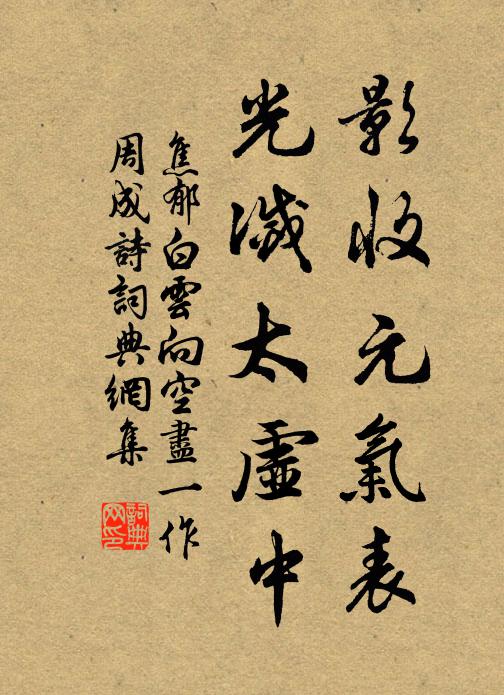 影收元氣表
光滅太虛中
焦郁白雲向空盡一作
周成詩詞典網集
詞典網印